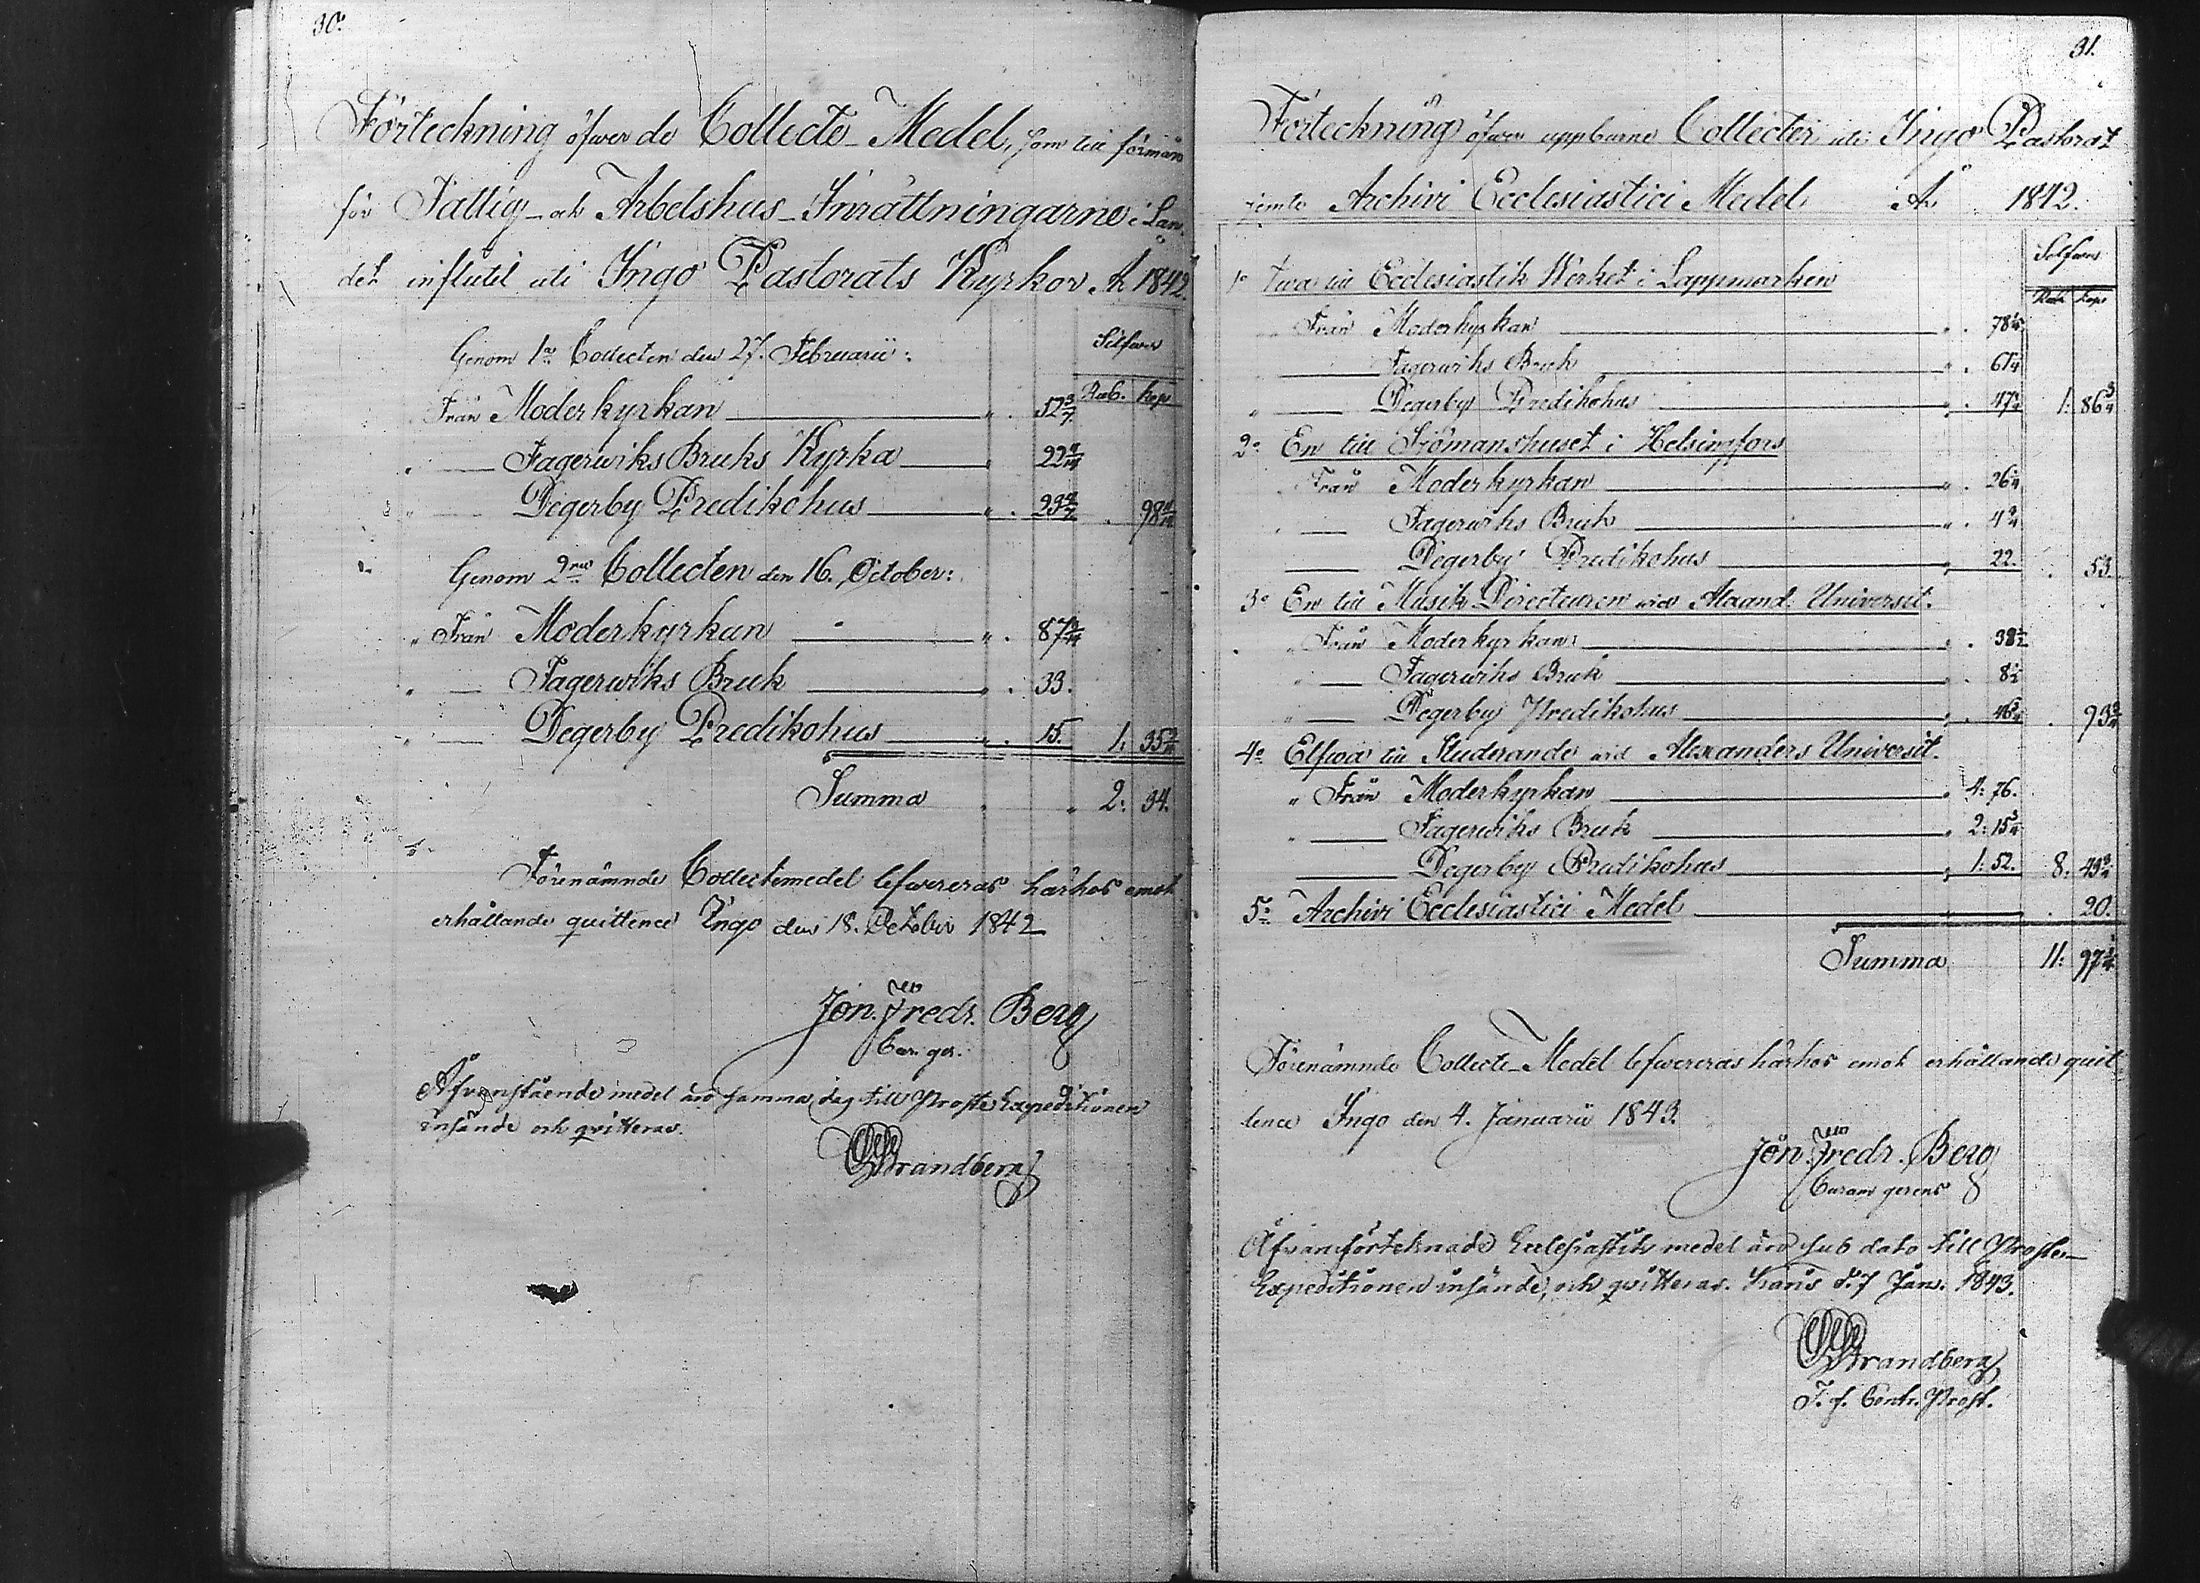 30.
Förteckning öfwer de Collecte-Medel, som till förmån
för Fattig- och Arbetshus-Inrättningarne i Lan-
det influtit uti Ingo Pastorats Kyrkor År 1842.
Silfwer
Genom 1a Collecten den 27. Februarii:
Rub. Kop
Från Moderkyrkan " . 52
" — Fagerwiks Bruks Kyrka " 22
" — Degerby Predikohus " . 23 . 98
Genom 2dra Collecten den 16. October:
" Från Moderkyrkan " . 87
" — Fagerwiks Bruk " . 33.
" — Degerby Predikohus " . 15. 1: 35
Summa " " 2: 34.
Förenämnde Collectemedel lefwereras härhos emot
erhållande quittence Ingo den 18. October 1842
Jon. Fredr. Berg
Cur. ger.
Åfvanstående medel äro samma dag till Prosts Expeditionen
insände och qvitteras.
Strandberg
31.
Förteckning öfwer uppburne Collecter uti Ingo Pastorat
jemte Archivi Ecclesiastici Medel År 1842.
Silfwer
Rub. Kop
1o Twå till Ecclesiastik Werket i Lappmarken
" Från Moderkyrkan " . 78
" — Fagerwiks Bruk " . 61
" — Degerby Predikohus " . 47 1: 86 3/4
2o En till Sjömanshuset i Helsingfors
Från Moderkyrkan " . 26
— Fagerwiks Bruk " . 4
— Degerby Predikohus " 22. . 53.
3o En till Musik Directeuren wid Alexand. Universit.
" Från Moderkyrkan " . 38 1/2
" — Fagerwiks Bruk " . 8 1/2
" — Degerby Predikohus " . 46 3/4 . 93 3/4
4o Elfwa till Studerande wid Alexanders Universit.
" Från Moderkyrkan " 4: 76.
" — Fagerwiks Bruk " 2: 15
— Degerby Predikohus " 1: 52. 8: 43
5o Archivi Ecclesiastici Medel . 20.
Summa 11: 97
Förenämnde Collecte-Medel lefwereras härhos emot erhållande quit-
tence Ingo den 4. Januarii 1843.
Jon. Fredr. Berg
Curam gerens
Åfvanförteknade Ecclesiastik medel äro sub dato till Prosts-
Expeditionen insände, och qvitteras. Karis d. 7 Jan. 1843.
Strandberg
T. f. Contr. Prost.